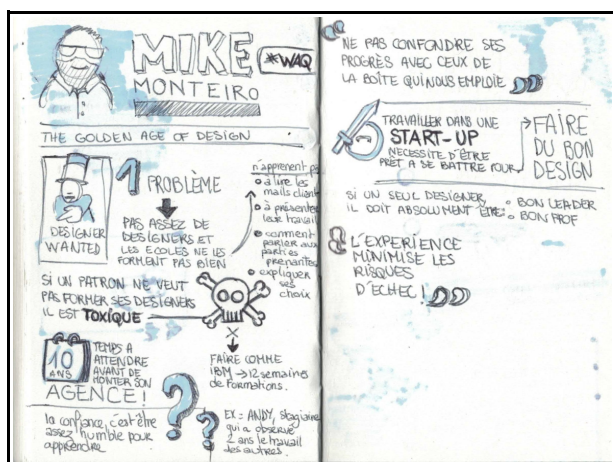 MIKE
MONTEIRO
*WAQ
THE GOLDEN AGE OF DESIGN
DESIGNER
WANTED
1 PROBLÈME
PAS ASSEZ DE
DESIGNERS ET
LES ECOLES NE LES
FORMENT PAS BIEN
n'apprenent pas
à lire les
mails client
à présenter
leur travail
comment
parler aux
parties
prenantes
expliquer
ses
choix
SI UN PATRON NE VEUT
PAS FORMER SES DESIGNERS
IL EST TOXIQUE
10
ANS
TEMPS A
ATTENDRE
AVANT DE
MONTER SON
AGENCE !
FAIRE COMME
IBM → 12 semaines
de Formations.
la confiance, c'est être
assez humble pour
apprendre
?
?
EX = ANDY, stagiaire
qui a observé
2 ans le travail
des autres.
NE PAS CONFONDRE SES
PROGRÈS AVEC CEUX DE
LA BOÎTE QUI NOUS EMPLOIE
TRAVAILLER DANS UNE
START-UP
NECESSITE D'ÊTRE
PRÊT A SE BATTRE POUR
FAIRE
DU BON
DESIGN
SI UN SEUL DESIGNER,
IL DOIT ABSOLUMENT ÊTRE :
BON LEADER
BON PROF
L'EXPERIENCE
MINIMISE LES
RISQUES
D'ECHEC !